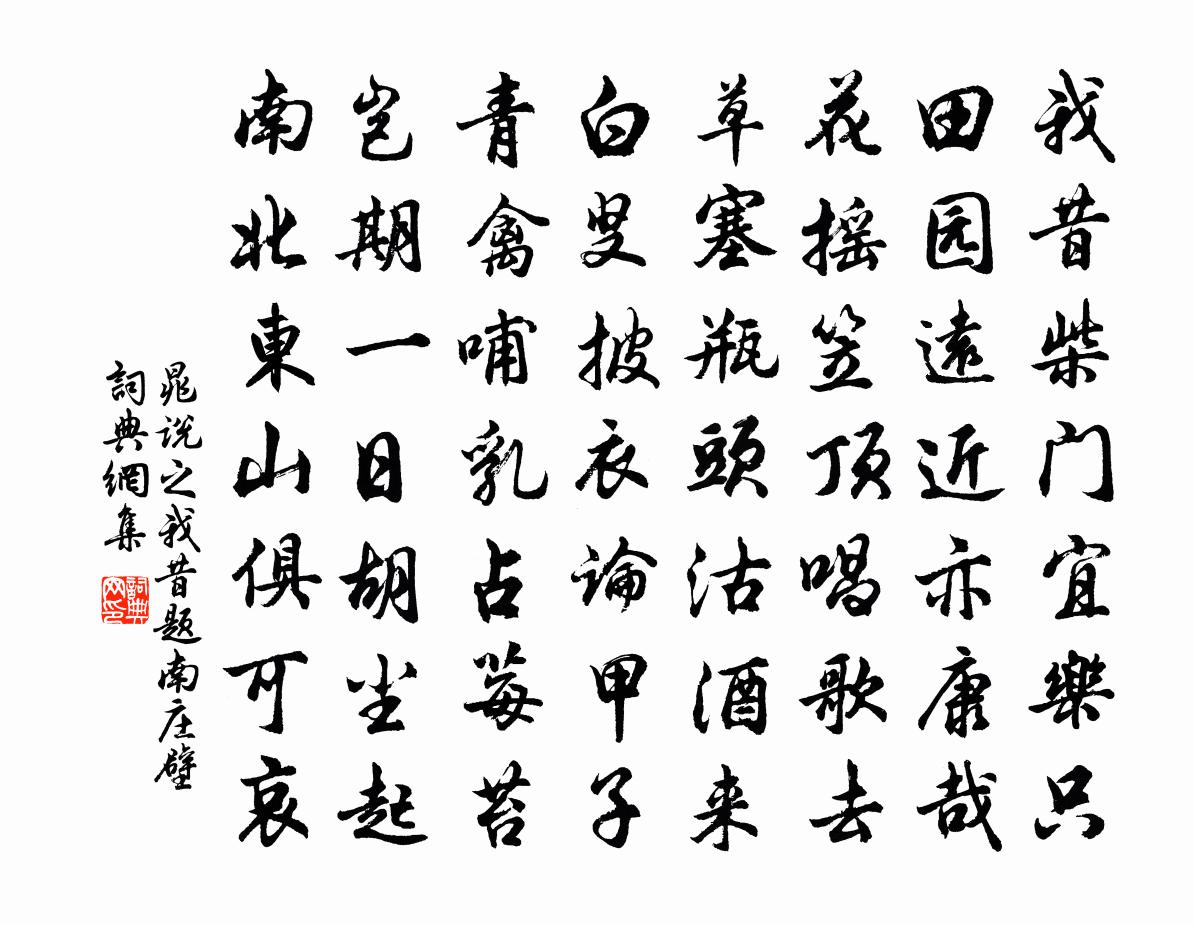 我昔柴门宜樂只
田园遠近亦康哉
花摇笠顶唱歌去
草塞瓶頭沽酒来
白叟披衣論甲子
青禽哺乳占莓苔
岂期一日胡尘起
南北東山俱可哀
晁说之我昔题南庄壁
詞典網集
詞典网印